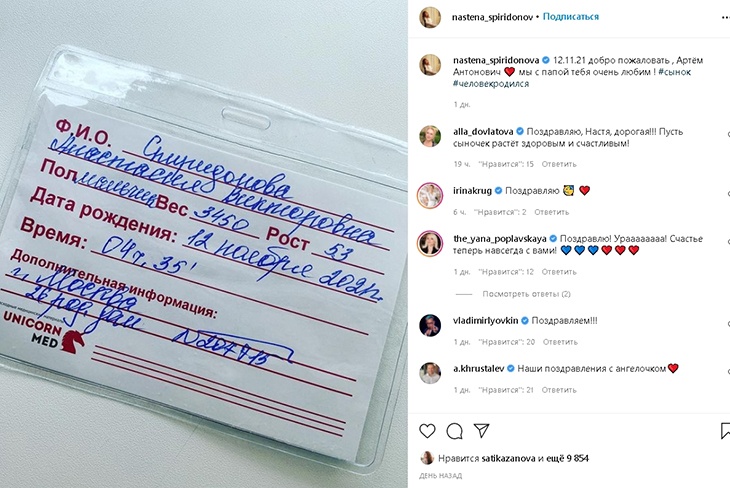 Ф.И.О. Спиридонова
Анастасия Викторовна
Пол мальчик Вес 3450 Рост 53
Дата рождения: 12 ноября 2021г.
Время: 04ч. 35'
Дополнительная информация:
г. Москва
26 род. дом
N207713
UNICORN
MED
nastena_spiridonov • Подписаться
nastena_spiridonova 12.11.21 добро пожаловать , Артём
Антонович ❤️ мы с папой тебя очень любим ! #сынок
#человекродился
1 дн.
alla_dovlatova Поздравляю, Настя, дорогая!!! Пусть
сыночек растёт здоровым и счастливым!
19 ч. "Нравится": 15 Ответить
irinakrug Поздравляю 🥰 ❤️
6 ч. "Нравится": 2 Ответить
the_yana_poplavskaya Поздравлю! Урааааааа! Счастье
теперь навсегда с вами! 💙💙💙❤️❤️
1 дн. "Нравится": 12 Ответить
Посмотреть ответы (2)
vladimirlyovkin Поздравляем!!!
1 дн. "Нравится": 20 Ответить
a.khrustalev Наши поздравления с ангелочком❤️
1 дн. "Нравится": 21 Ответить
Нравится satikazanova и ещё 9 854
ДЕНЬ НАЗАД